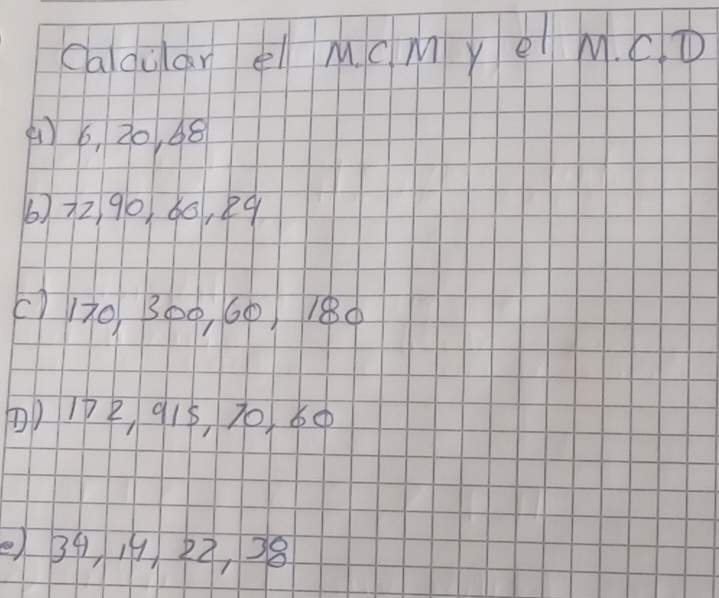 Calcular el M.C.M y el M.C.D
a) 6, 20, 68
b) 72, 90, 60, 24
c) 170, 300, 60, 180
D) 172, 915, 70, 60
e) 34, 14, 22, 38